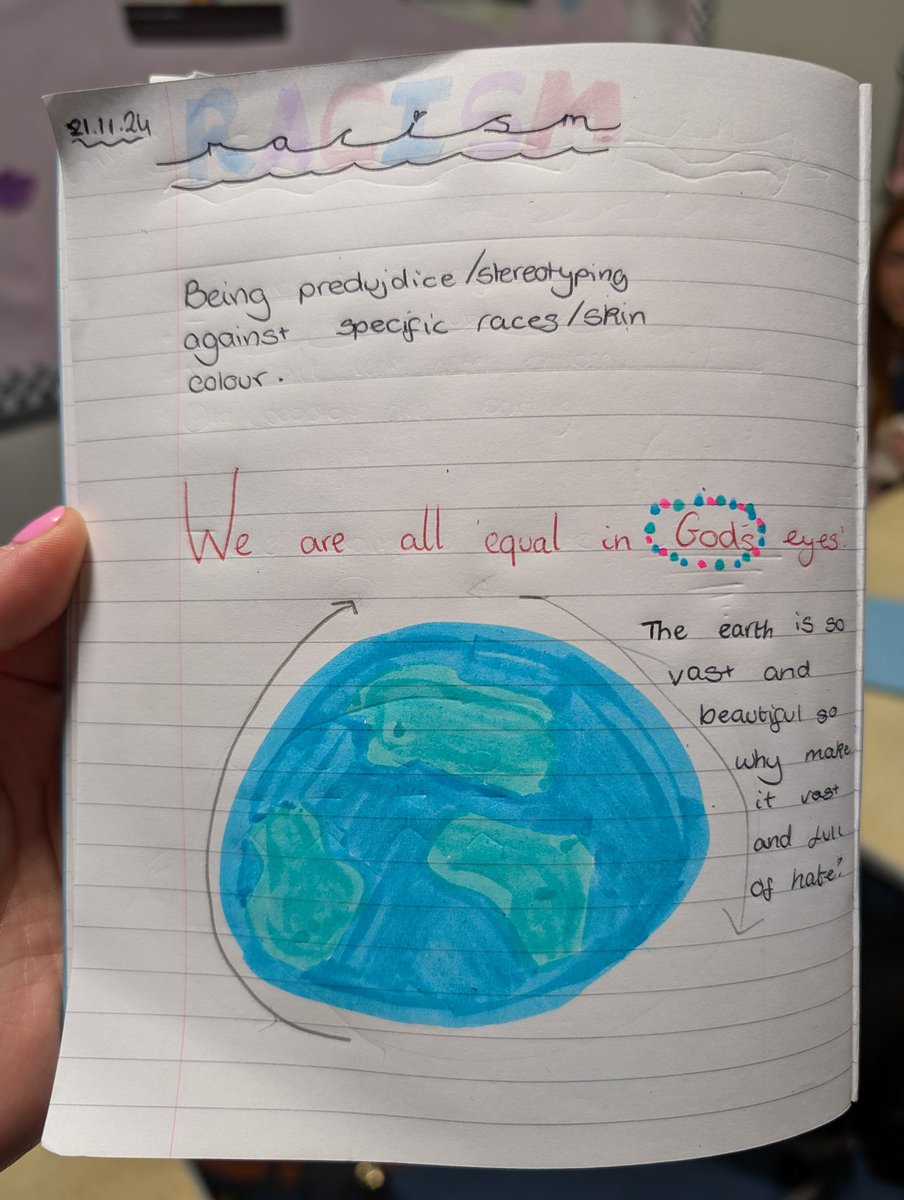 21.11.24
RACISM
racism
Being predujdice/stereotyping
against specific races/skin
colour.
We are all equal in God's eyes!
The earth is so
vast and
beautiful so
why make
it vast
and full
of hate?